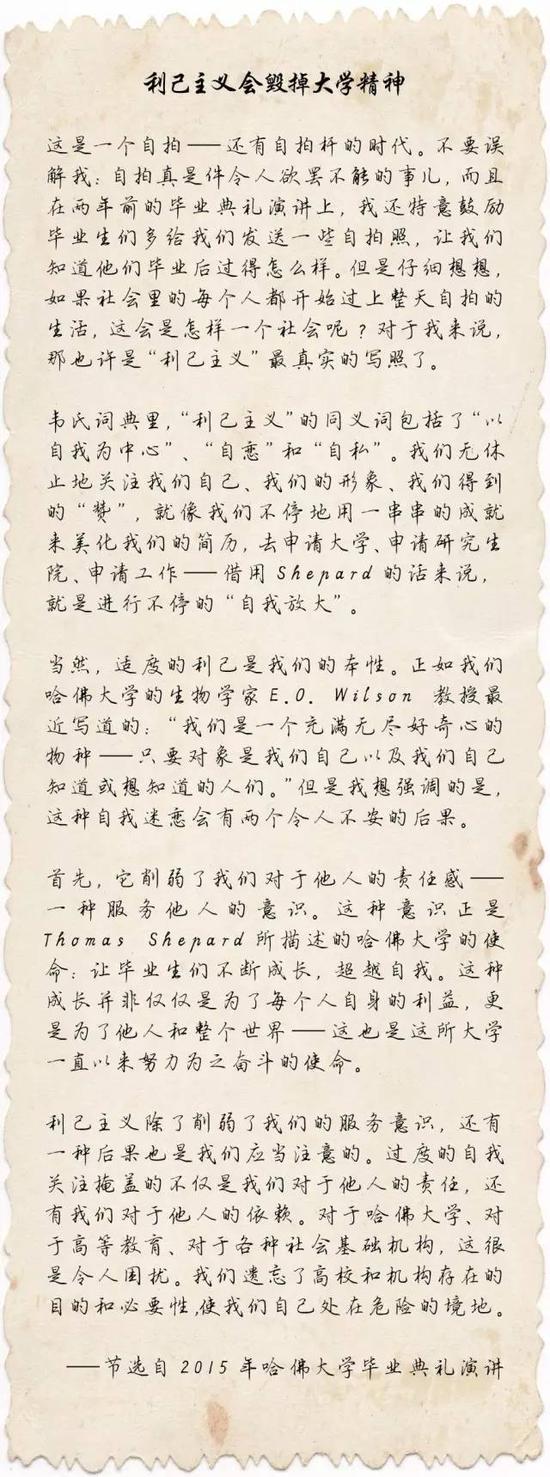 利己主义会毁掉大学精神
这是一个自拍——还有自拍杆的时代。不要误
解我：自拍真是件令人欲罢不能的事儿，而且
在两年前的毕业典礼演讲上，我还特意鼓励
毕业生们多给我们发送一些自拍照，让我们
知道他们毕业后过得怎么样。但是仔细想想，
如果社会里的每个人都开始过上整天自拍的
生活，这会是怎样一个社会呢？对于我来说，
那也许是“利己主义”最真实的写照了。
韦氏词典里，“利己主义”的同义词包括了“以
自我为中心”、“自恋”和“自私”。我们无休
止地关注我们自己、我们的形象、我们得到
的“赞”，就像我们不停地用一串串的成就
来美化我们的简历，去申请大学、申请研究生
院、申请工作——借用Shepard的话来说，
就是进行不停的“自我放大”。
当然，适度的利己是我们的本性。正如我们
哈佛大学的生物学家E.O. Wilson 教授最
近写道的：“我们是一个充满无尽好奇心的
物种——只要对象是我们自己以及我们自己
知道或想知道的人们。”但是我想强调的是，
这种自我迷恋会有两个令人不安的后果。
首先，它削弱了我们对于他人的责任感——
一种服务他人的意识。这种意识正是
Thomas Shepard所描述的哈佛大学的使
命：让毕业生们不断成长，超越自我。这种
成长并非仅仅是为了每个人自身的利益，更
是为了他人和整个世界——这也是这所大学
一直以来努力为之奋斗的使命。
利己主义除了削弱了我们的服务意识，还有
一种后果也是我们应当注意的。过度的自我
关注掩盖的不仅是我们对于他人的责任，还
有我们对于他人的依赖。对于哈佛大学、对
于高等教育、对于各种社会基础机构，这很
是令人困扰。我们遗忘了高校和机构存在的
目的和必要性，使我们自己处在危险的境地。
——节选自2015年哈佛大学毕业典礼演讲